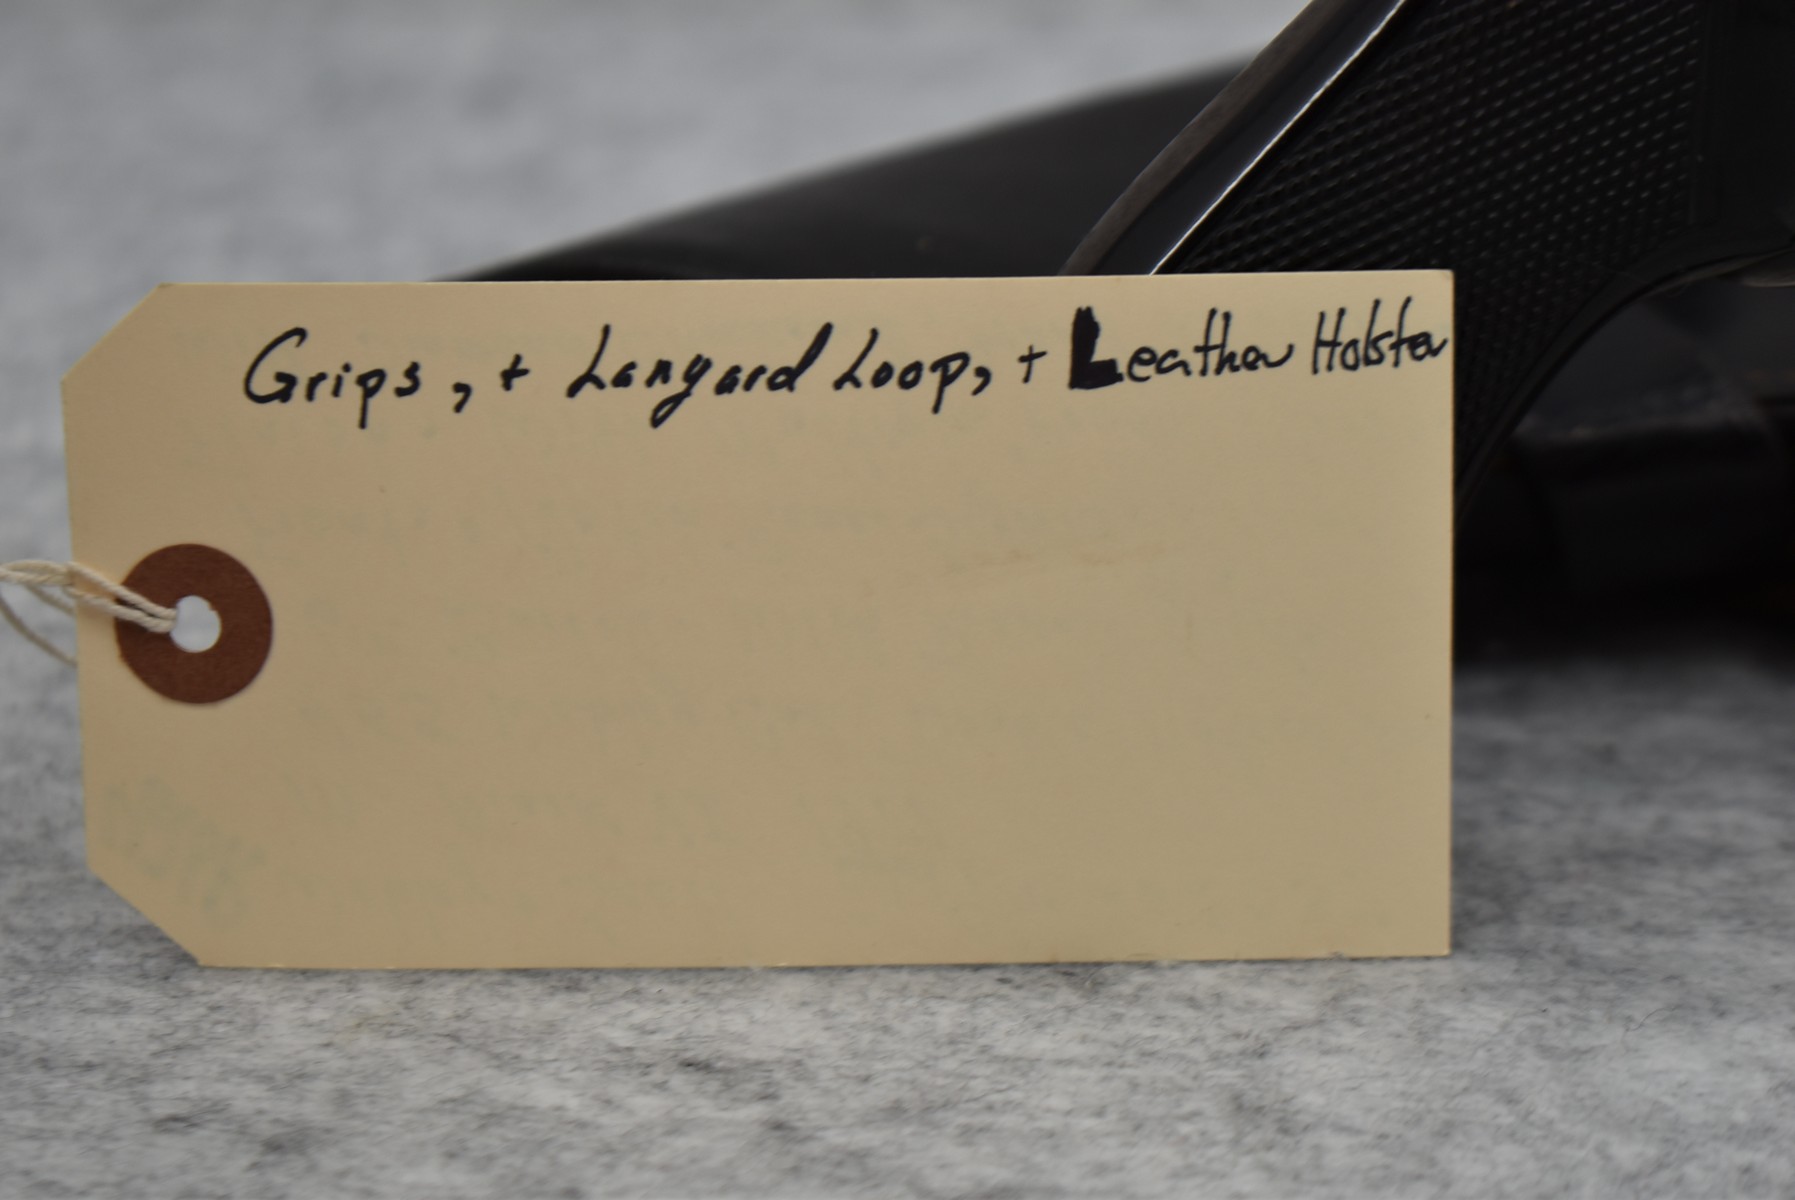 Grips, + Lanyard Loop, + Leather Holster